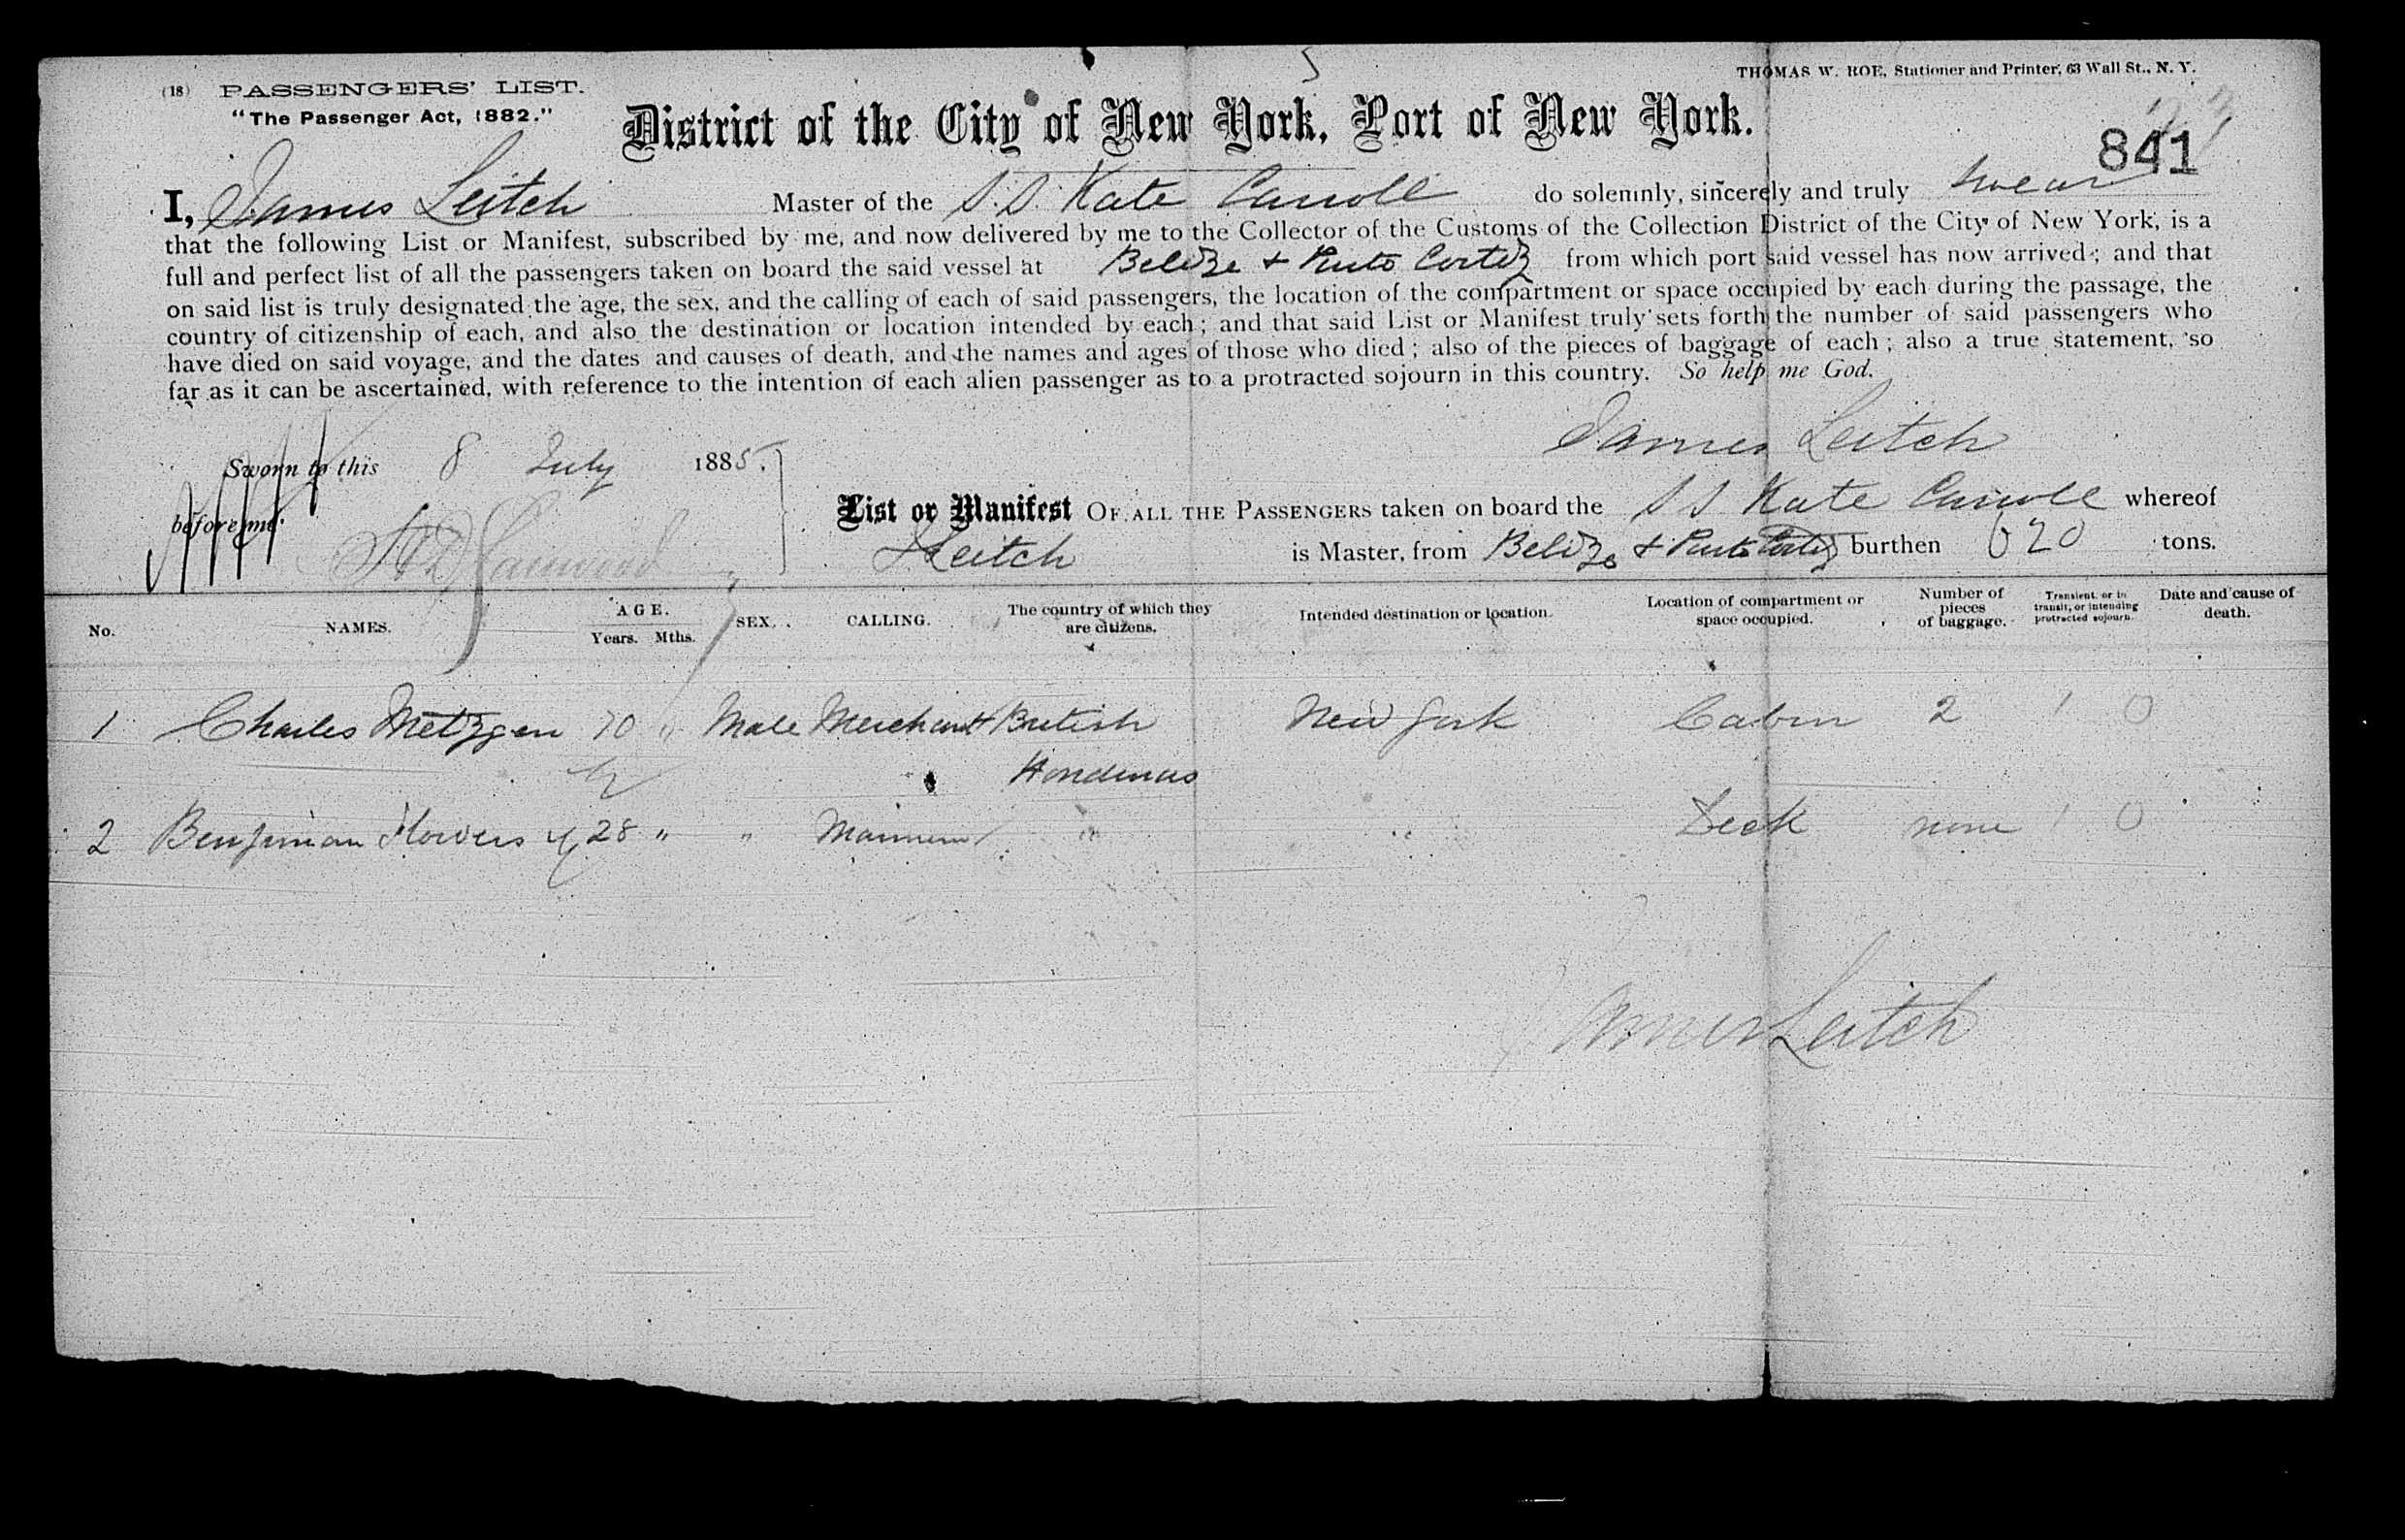 (18) PASSENGERS' LIST.
THOMAS W. ROE, Stationer and Printer, 63 Wall St., N. Y.
"The Passenger Act, 1882."
District of the City of New York, Port of New York.
841
I, James Leitch Master of the S.S. Kate Carroll do solemnly, sincerely and truly swear
that the following List or Manifest, subscribed by me, and now delivered by me to the Collector of the Customs of the Collection District of the City of New York, is a
full and perfect list of all the passengers taken on board the said vessel at Belize + Puto Cortez from which port said vessel has now arrived; and that
on said list is truly designated the age, the sex, and the calling of each of said passengers, the location of the compartment or space occupied by each during the passage, the
country of citizenship of each, and also the destination or location intended by each; and that said List or Manifest truly sets forth the number of said passengers who
have died on said voyage, and the dates and causes of death, and the names and ages of those who died; also of the pieces of baggage of each; also a true statement, so
far as it can be ascertained, with reference to the intention of each alien passenger as to a protracted sojourn in this country. So help me God.
James Leitch
Sworn to this 8 July 1885.
before me
List or Manifest OF ALL THE PASSENGERS taken on board the S S Kate Carroll whereof
J Leitch is Master, from Belize + Puto Cortez burthen 620 tons.
No. NAMES. AGE. Years. Mths. SEX. CALLING. The country of which they are citizens. Intended destination or location. Location of compartment or space occupied. Number of pieces of baggage. Transient, or in transit, or intending protracted sojourn. Date and cause of death.
1 Charles Metzgen 70 " Male Merchant British New York Cabin 2 1 0
Honduras
2 Benjiman Flowers 28 " " Mariner " " Deck none 1 0
James Leitch